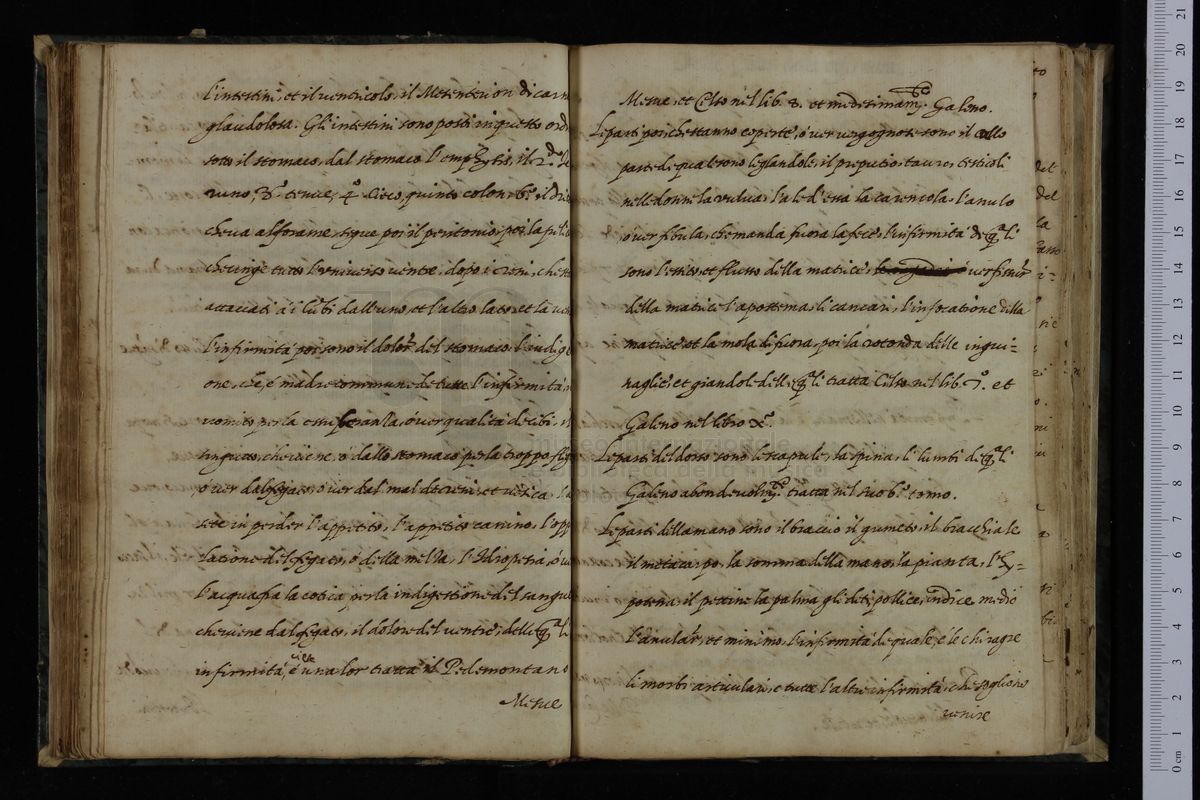 l'intestini, et il ventricolo, il Mesenterion di carn
glandolosa. Gli intestini sono posti in questo ord
soto il stomaco, dal stomaco l'emphytis, il 2.do
runo, 3.o tenue, 4.o Cieco, quinto colon, 6.o il Dri
che va al forame, segue poi il peritonio, poi la
che unge tutto l'universo ventre, dopo i reni, che
attaccati à i lũbi dall'uno, et l'altro lato, et la
l'infirmità poi sono il dolor del stomaco, l'indige
one, cioè, è madre commune de tutte l'infirmità, i
vomito per la, ò ver qualità de cibi, il
singucto, che viene, ò dallo stomaco per la troppo
ò ver dal fegato, ò ver dal mal de reni, et vesica, la
sete in perder l'appetito, l'appetito canino, l'opp
latione del fegato, ò della melza, l'Idropesia, ò
l'acqua fra la cotica, per la indigestione del sangue
che viene dal fegato, il dolore del ventre, delle q.li
infirmità, è un a lor tratta il Pedemontano
Mesue
Mesue, et Celso nel lib. 8. et medesimam.te Galeno.
Le parti poi che stanno coperte, ò ver vergognose sono il collo
parte de quale sono le glandole, il preputio, tauro, testicoli
nelle donne la vulva, l'ale d'essa la caroncola, l'anulo
ò ver fibula, che manda fuora la fece, l'infirmità de q.li
sono l', et flusso della matrice, ò ver
della matrice l'apostema, li cancari, l'infocatione della
matrice, et la mola di fuora, poi la rotonda delle ingui=
naglie, et giandole delle q.li tratta Celso nel lib. 7.o et
Galeno nel libro X.o
Le parti del dosso sono le scapule, la spina, li lumbi de q.li
Galeno abondevolm.te tratta nel suo 6.o tomo.
Le parti della mano sono il braccio il gumeto, il bracchiale
il metacarpo, la somma della mano, la pianta, l'Hy=
potena, il petine la palma gli deti pollice, indice medio
l'anular, et minimo, l'infirmità de quale, è le chiragre
li morbi articulari, e tutte l'altre infirmità, che sogliono
venire
museo internazionale
biblioteca della musica